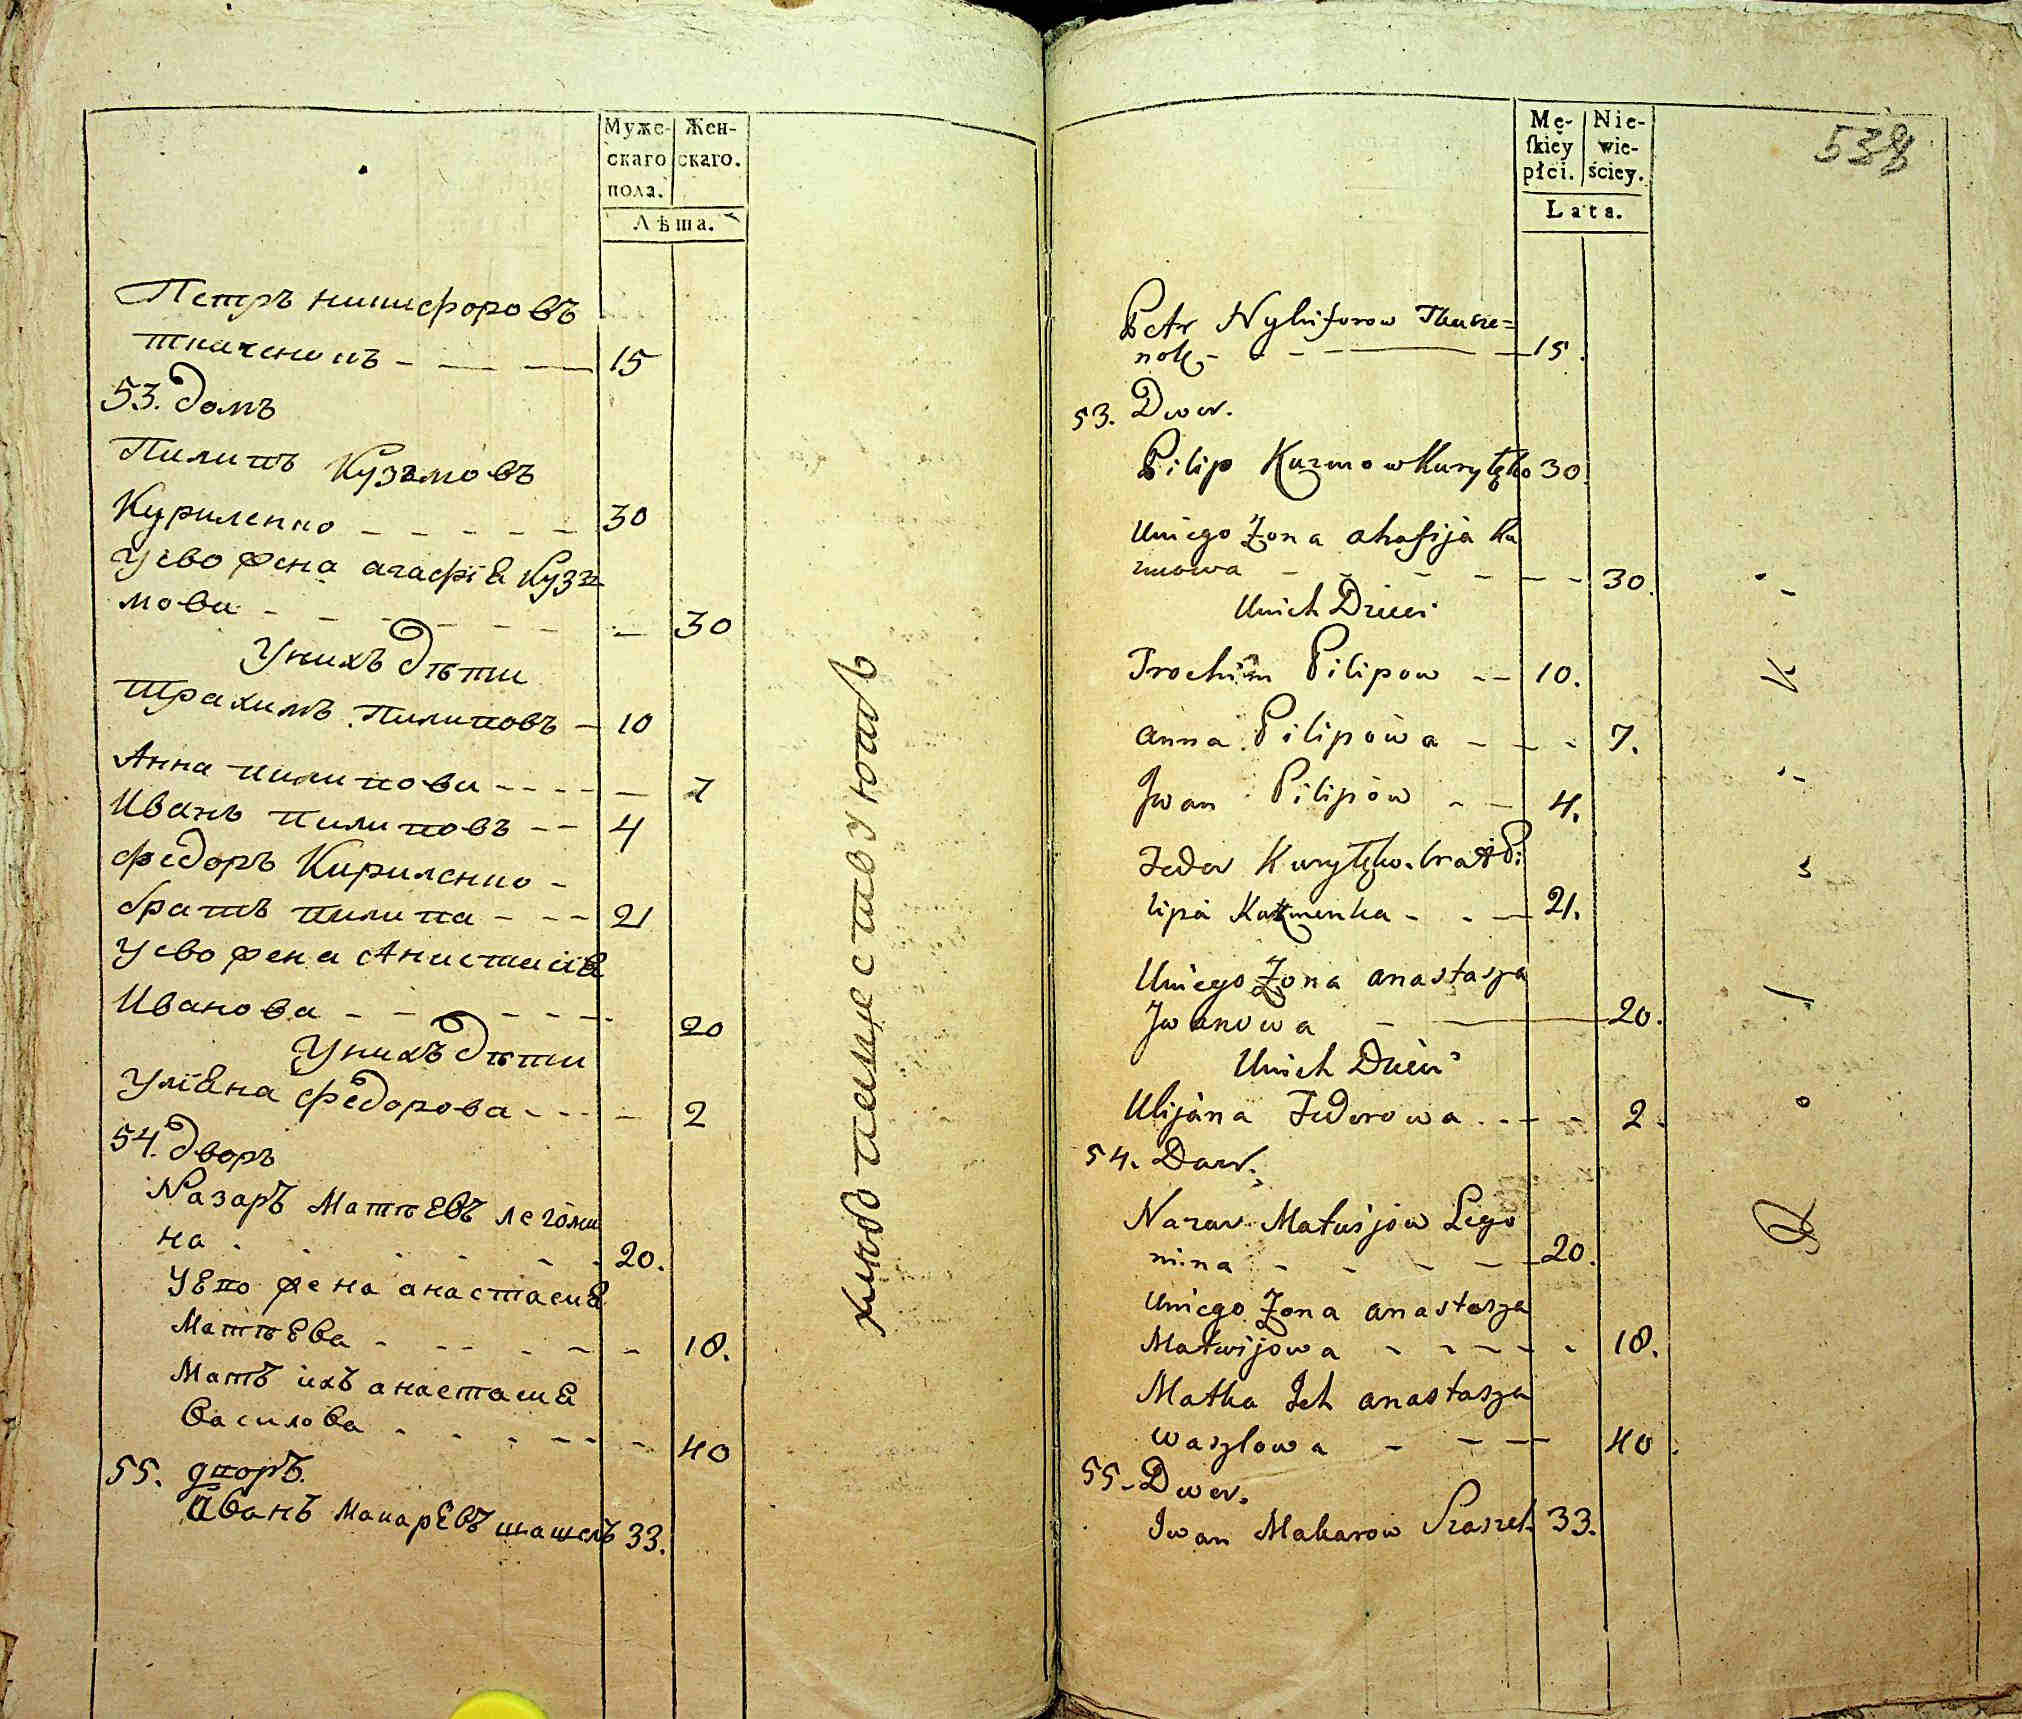 Муже-
скаго
пола.
Жен-
скаго.
Лѣта.
Петръ никифоровъ
ткаченокъ - - - 15
53. домъ
Пилипъ Кузмовъ
Куриленко - - - - - 30
У ево жена агафія Кузь
мова - - - - - - - 30
У нихъ дѣти
Трахимъ Пилиповъ - 10
Анна пилипова - - - - - 7
Иванъ пилиповъ - - 4
Федоръ Кириленко -
братъ пилипа - - - 21
У ево жена Анастасия
Иванова - - - - - - 20
У нихъ дѣти
Уліяна Федорова - - - - 2
54. дворъ
Назаръ Матвѣевъ легоми
на - - - - - - 20.
У его жена анастасия
Матвѣева - - - - - - 18.
Матъ ихъ анастасия
Василова - - - - - - 40
55. дворъ.
Иванъ Макаревъ шашелъ 33.
Mę-
skiey
płci.
Nie-
wie-
ściey.
Lata.
538
Petr Nykiforow Tkacze=
nok - - - - 15.
53. Dwor.
Pilip Kuzmow Kuryłęko 30.
Uniego Żona ahafija Ku
zmowa - - - - - - - 30.
Unich Dzieci
Trochim Pilipow - - 10.
anna Pilipowa - - - 7.
Jwan Pilipow - - 4.
Fedor Kuryłęko. brat Pi
lipa Kuzmenka - - - 21.
Uniego Żona anastazya
Jwanowa - - 20.
Unich Dzieci
Ulijana Fedorowa - - - - 2.
54. Dwor.
Nazar Matwijow Lego
mina - - - - - 20.
Uniego Żona anastazya
Matwijowa - - - - - - 18.
Matka Ich anastazya
waszlowa - - - - 40.
55. Dwor.
Iwan Makarow Szaszel. 33.